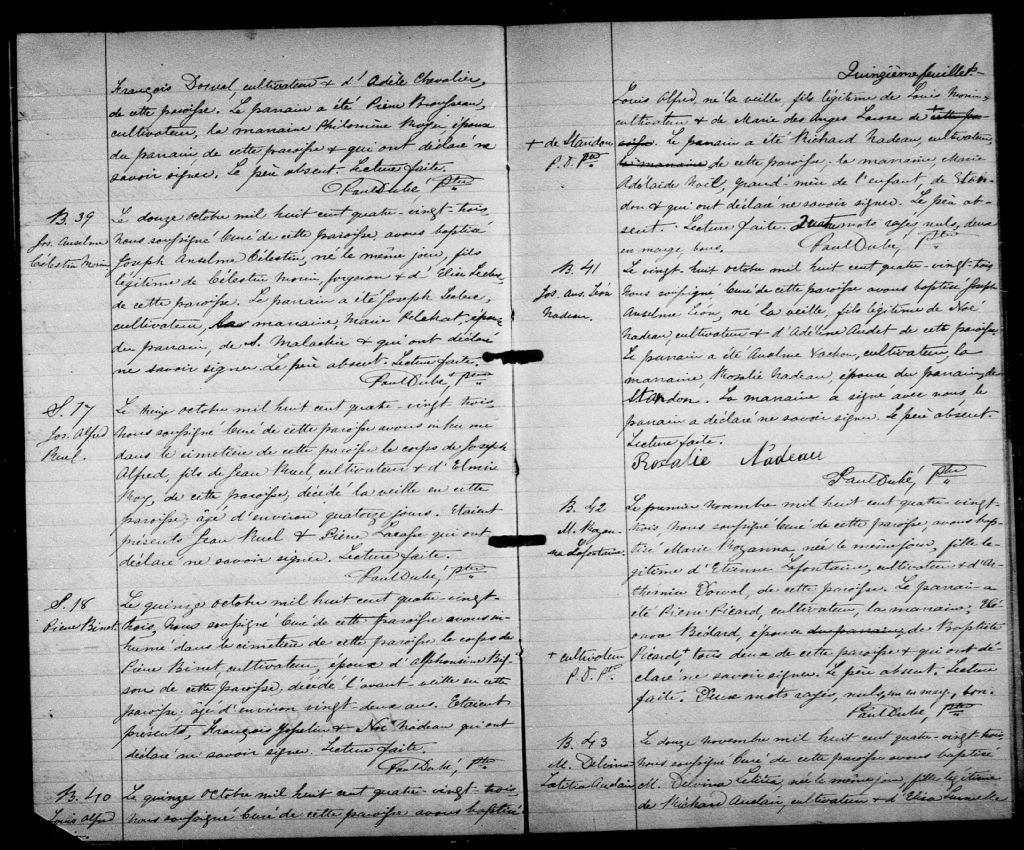 François Dorval, cultivateur & d'Adèle Chevalier,
de cette paroisse. Le parrain a été Pierre Brousseau,
cultivateur, la marraine Philomène Royer, épouse
du parrain de cette paroisse & qui ont déclaré ne
savoir signer. Le père absent. Lecture faite.
Paul Dubé, Ptre
B. 39
Jos. Anselme
Célestin Morin
Le douze octobre mil huit cent quatre-vingt-trois,
Nous soussigné Curé de cette paroisse, avons baptisé
Joseph Anselme Célestin, né le même jour, fils
légitime de Célestin Morin, forgeron & d'Elise Leclerc,
de cette paroisse. Le parrain a été Joseph Leclerc,
cultivateur, la marraine, Marie épouse
du parrain, de S. Malachie & qui ont déclaré
ne savoir signer. Le père absent. Lecture faite.
Paul Dubé, Ptre
S. 17
Jos. Alfred
Ruel.
Le octobre mil huit cent quatre-vingt-trois
Nous soussigné Curé de cette paroisse avons inhumé
dans le cimetière de cette paroisse le corps de Joseph
Alfred, fils de Jean Ruel, cultivateur & d'Elmire
Roy, de cette paroisse, décédé la veille en cette
paroisse, âgé d'environ quatorze jours. Etaient
présents Jean Ruel & Pierre qui ont
déclaré ne savoir signer. Lecture faite.
Paul Dubé, Ptre
S. 18
Pierre Binet
Le quinze octobre mil huit cent quatre-vingt-
trois, Nous soussigné Curé de cette paroisse avons in-
humé dans le cimetière de cette paroisse le corps de
Pierre Binet, cultivateur, époux d'Alphonsine Bis-
son de cette paroisse, décédé l'avant-veille en cette
paroisse, âgé d'environ vingt-deux ans. Etaient
présents, François Gosselin & Noé Nadeau qui ont
déclaré ne savoir signer. Lecture faite.
Paul Dubé, Ptre
B. 40
Louis Alfred
Le quinze octobre mil huit cent quatre-vingt-trois
Nous soussigné Curé de cette paroisse avons baptisé
Quinzième feuillet
Louis Alfred, né la veille, fils légitime de Louis Morin,
cultivateur & de Marie des Anges de + cette pa-
roisse. Le parrain a été Richard Nadeau, cultivateur,
+ de Standon
P. D. Ptre
la marraine de cette paroisse; la marraine Marie
Adélaïde Noël, grand-mère de l'enfant, de Stan-
don & qui ont déclaré ne savoir signer. Le père ab-
sent. Lecture faite. Quatre mots rayés nuls, deux
en marge, bons.
Paul Dubé, Ptre
B. 41
Jos. Ans. Léon
Nadeau.
Le vingt-huit octobre mil huit cent quatre-vingt-trois
Nous soussigné Curé de cette paroisse avons baptisé Joseph
Anselme Léon, né la veille, fils légitime de Noé
Nadeau, cultivateur & d'Adéline Audet de cette paroisse.
Le parrain a été Anselme Vachon, cultivateur, la
marraine, Rosalie Nadeau, épouse du parrain, de
Standon. La marraine a signé avec nous, le
parrain a déclaré ne savoir signer. Le père absent.
Lecture faite.
Rosalie Nadeau
Paul Dubé, Ptre
B. 42
M. Rozan-
na Lafontaine.
Le premier novembre mil huit cent quatre-vingt-
trois Nous soussigné Curé de cette paroisse, avons bap-
tisé Marie Rozanna, née le même jour, fille lé-
gitime d'Etienne Lafontaine, cultivateur & d'Ar-
themise Dorval, de cette paroisse. Le parrain a
été Pierre Picard, cultivateur, la marraine, Elé-
onore Bédard, épouse du parrain, de Baptiste
+ cultivateur
P. D. Ptre
Picard,+ tous deux de cette paroisse & qui ont dé-
claré ne savoir signer. Le père absent. Lecture
faite. Deux mots rayés, nuls, un en marge, bon.
Paul Dubé, Ptre
B. 43
M. Delvina
Lætitia Audain
Le douze novembre mil huit cent quatre-vingt-trois
Nous soussigné Curé de cette paroisse avons baptisé
M. Delvina Letitia, née le même jour, fille légitime
de Richard Audain, cultivateur & d'Elisa